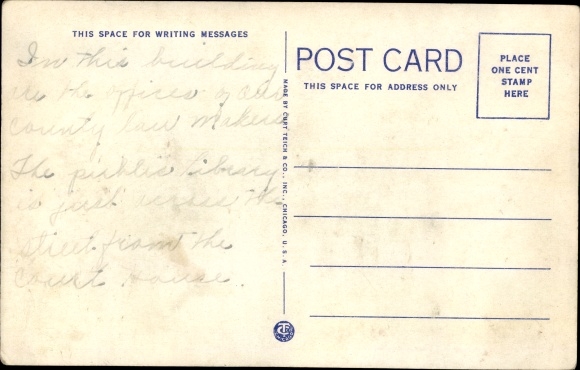 THIS SPACE FOR WRITING MESSAGES
In this building
is the offices of our
county law makers
The public library
is just across the
street from the
court house.
MADE BY CURT TEICH & CO., INC., CHICAGO, U.S.A.
POST CARD
THIS SPACE FOR ADDRESS ONLY
PLACE
ONE CENT
STAMP
HERE